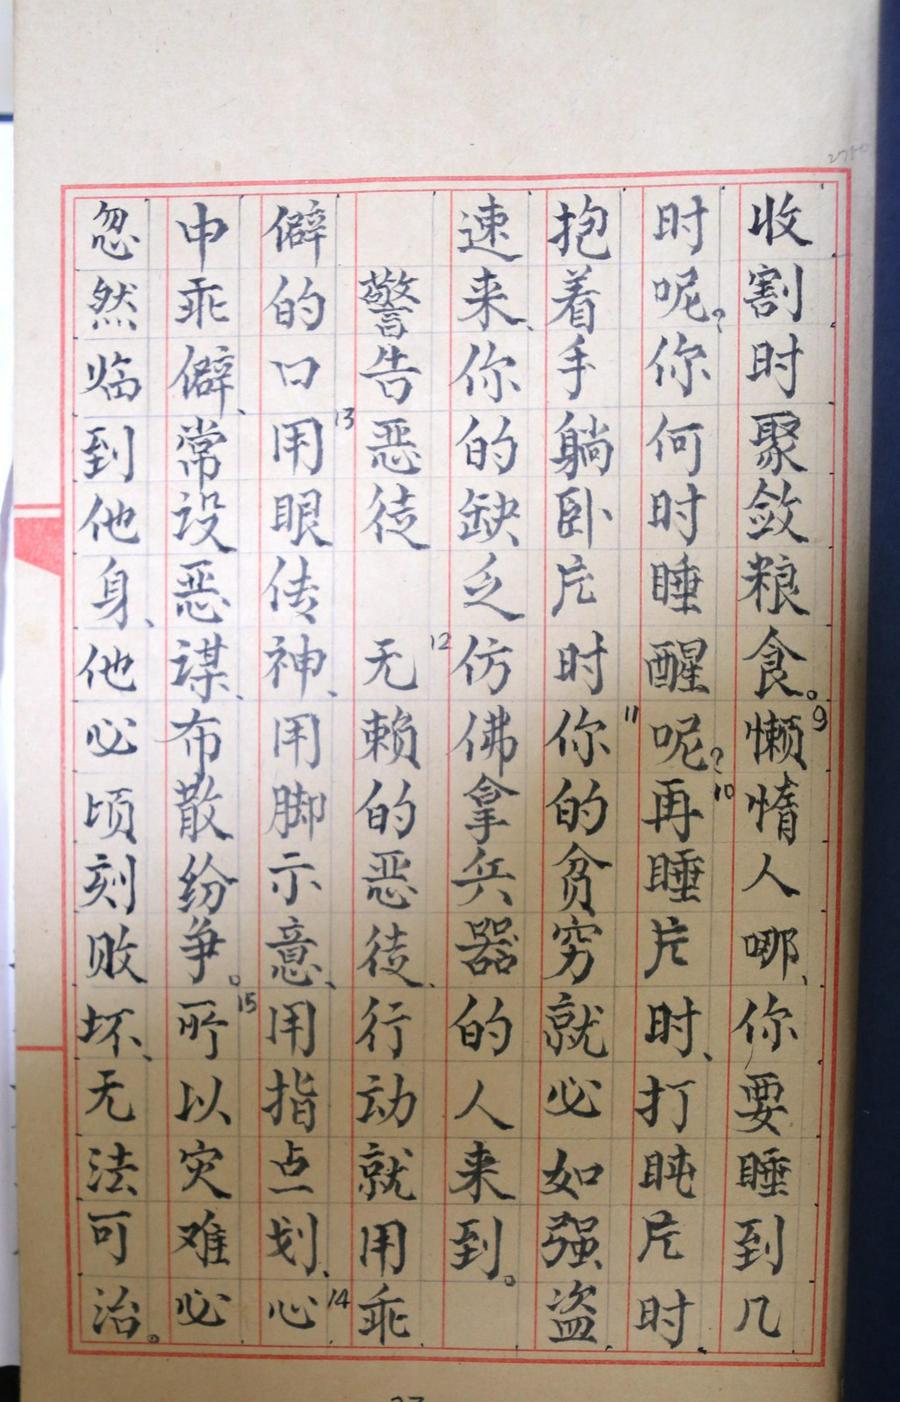 收割时聚敛粮食。9懒惰人哪、你要睡到几
时呢？你何时睡醒呢？10再睡片时、打盹片时、
抱着手躺卧片时11你的贫穷就必如强盗、
速来、你的缺乏仿佛拿兵器的人来到。
警告恶徒 12无赖的恶徒、行动就用乖
僻的口13用眼传神、用脚示意、用指点划、14心
中乖僻、常设恶谋、布散纷争。15所以灾难必
忽然临到他身、他必顷刻败坏、无法可治。